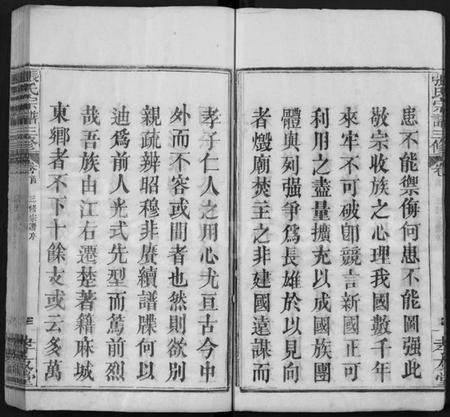 張氏宗譜三修
患不能禦侮何患不能圖强此
敬宗收族之心理我國數千年
來牢不可破卽競言新國正可
利用之盡量擴充以成國族團
與列强爭爲長雄於以見向
者燬廟焚主之非建國遠謀而
孝子仁人之用心尤亘古今中
外而不容或間者也然則欲別
親疏辨昭穆非賡續譜牒何以
迪爲前人光式先型而篤前烈
哉吾族由江右遷楚著籍麻城
東鄉者不下十餘支或云多萬
張氏宗譜三修
三修宗譜序
孝友堂